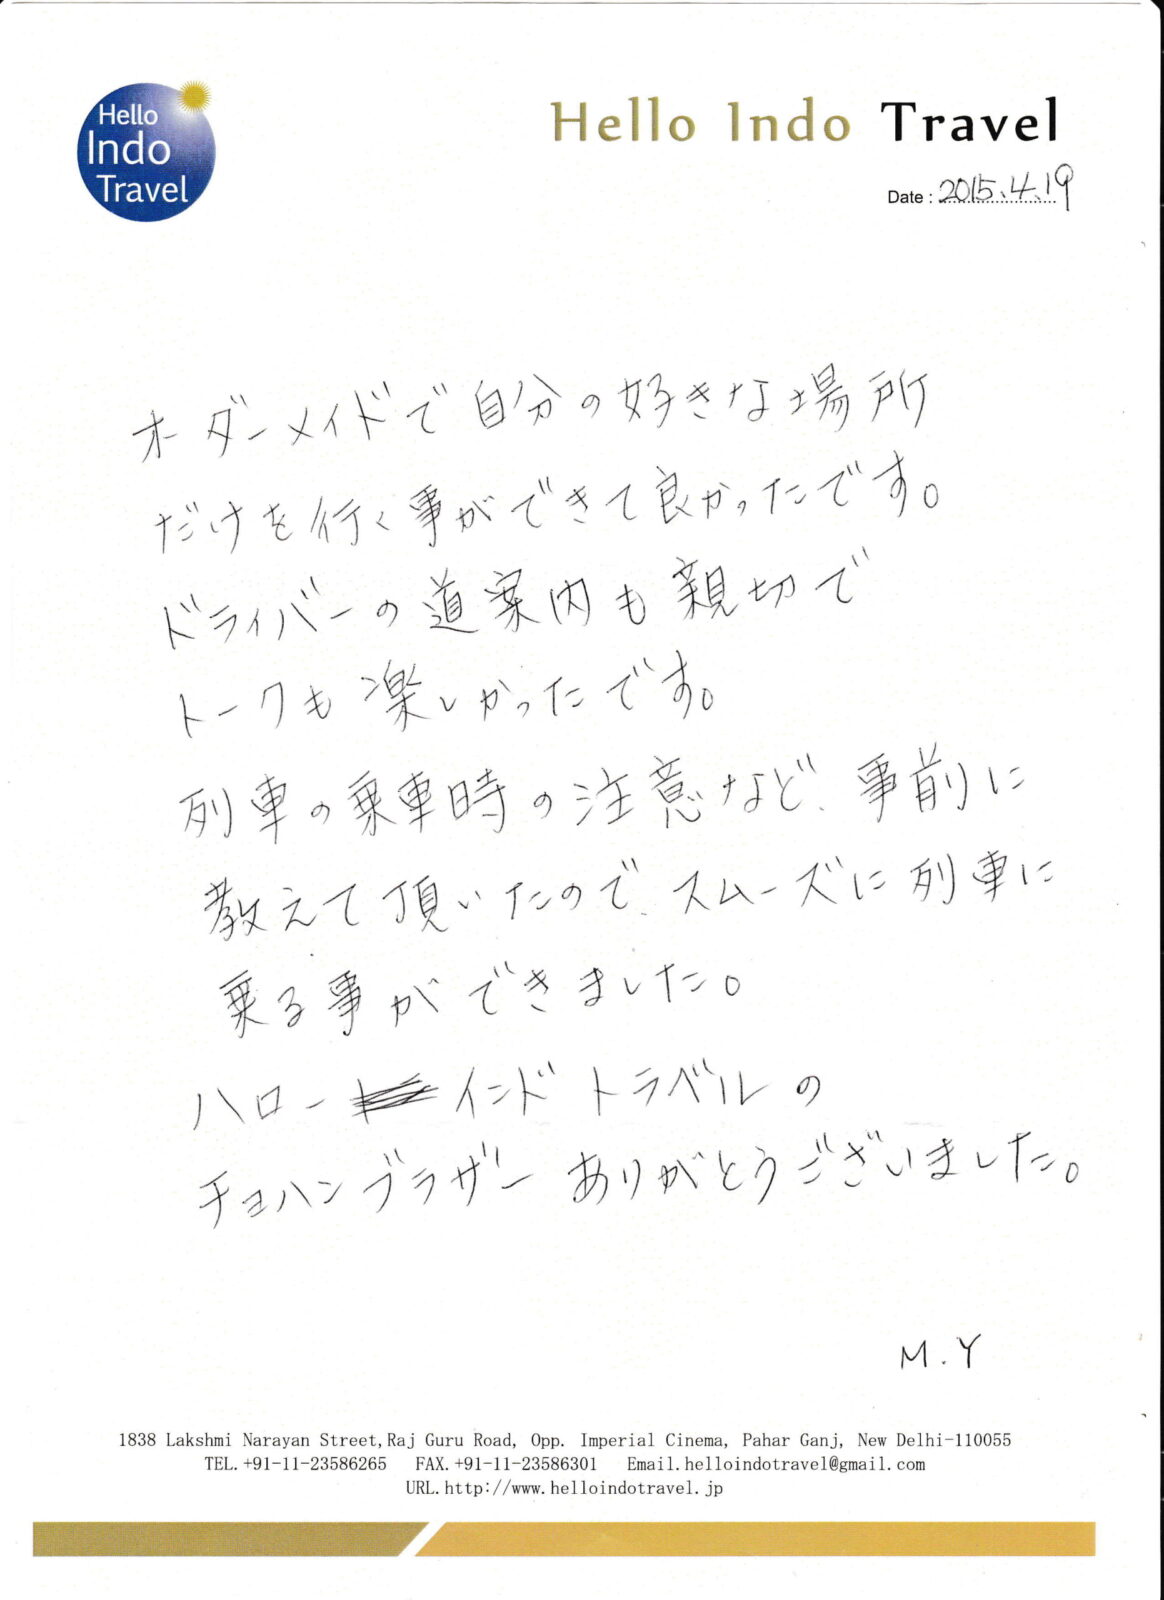 Hello
Indo
Travel
Hello Indo Travel
Date : 2015.4.19
オーダーメイドで自分の好きな場所
だけを行く事ができて良かったです。
ドライバーの道案内も親切で
トークも楽しかったです。
列車の乗車時の注意など、事前に
教えて頂いたので、スムーズに列車に
乗る事ができました。
ハローインドトラベルの
チョハンブラザー ありがとうございました。
M.Y
1838 Lakshmi Narayan Street,Raj Guru Road, Opp. Imperial Cinema, Pahar Ganj, New Delhi-110055
TEL.+91-11-23586265 FAX.+91-11-23586301 Email.helloindotravel@gmail.com
URL.http://www.helloindotravel.jp